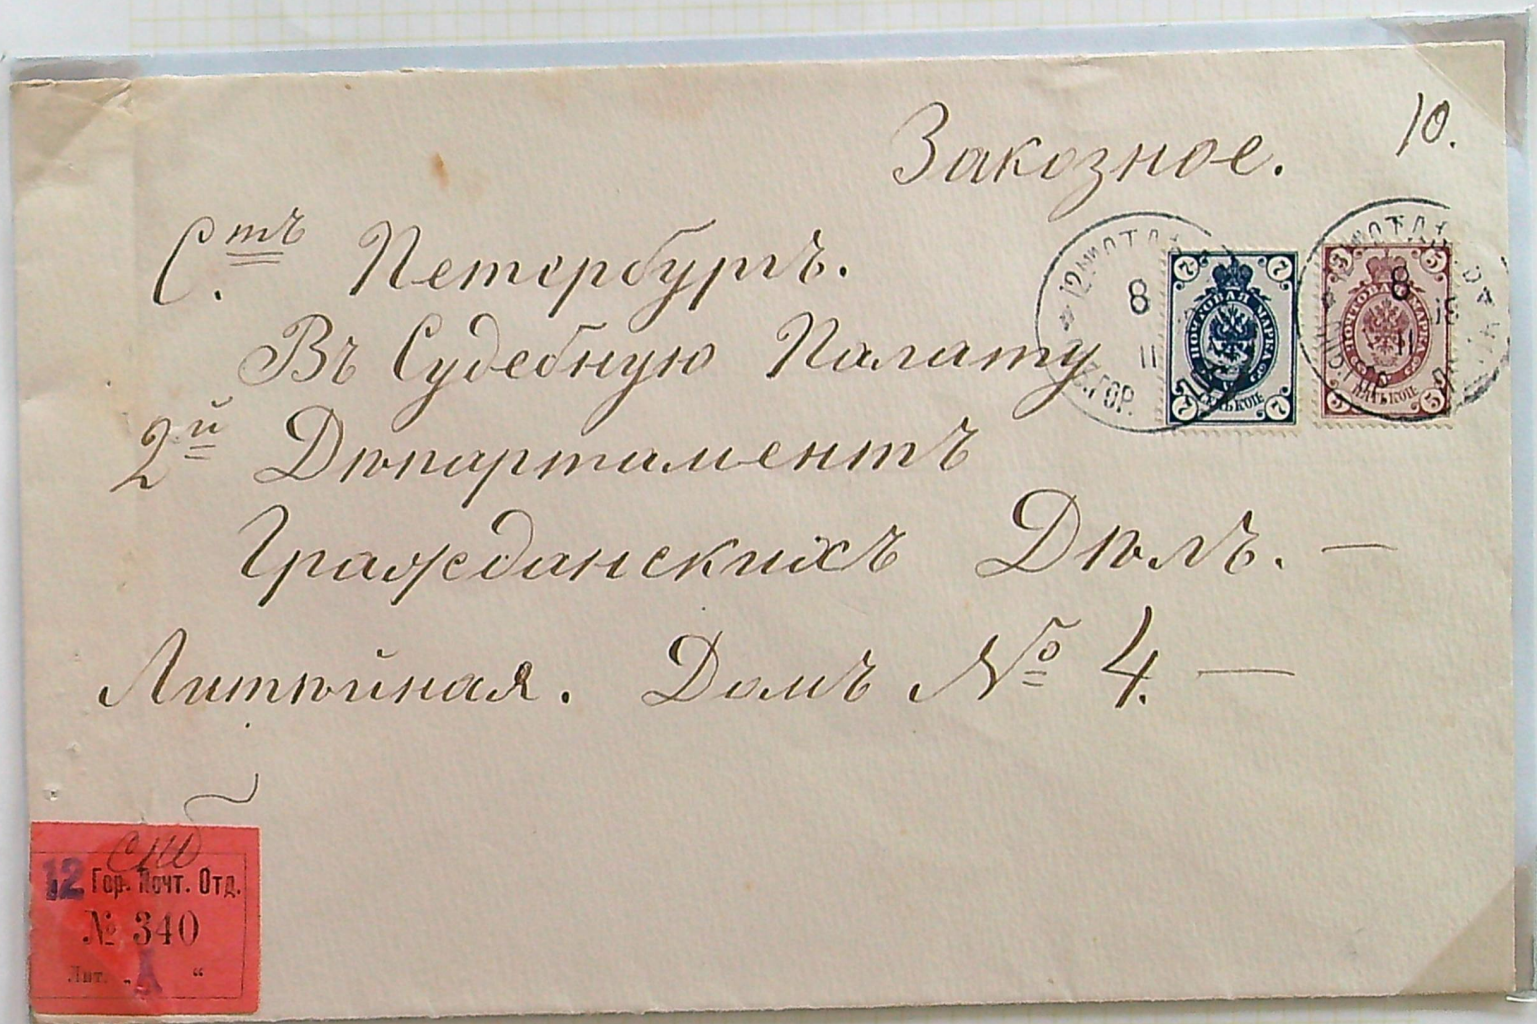 Заказное. 10.
С.тъ Петербургъ.
Въ Судебную Палату
2й Дѣпартаментъ
Гражданскихъ Дѣлъ. —
Литѣйная. Домъ № 4. —
7 7
ПОЧТОВАЯ МАРКА
СЕМЬ КОП.
7 7
5
ПОЧТОВАЯ МАРКА
ПЯТЬ КОП.
5 5
12
8
II
ГОР.
8
II
спб
12 Гор. Почт. Отд.
№ 340
Лит. „А“